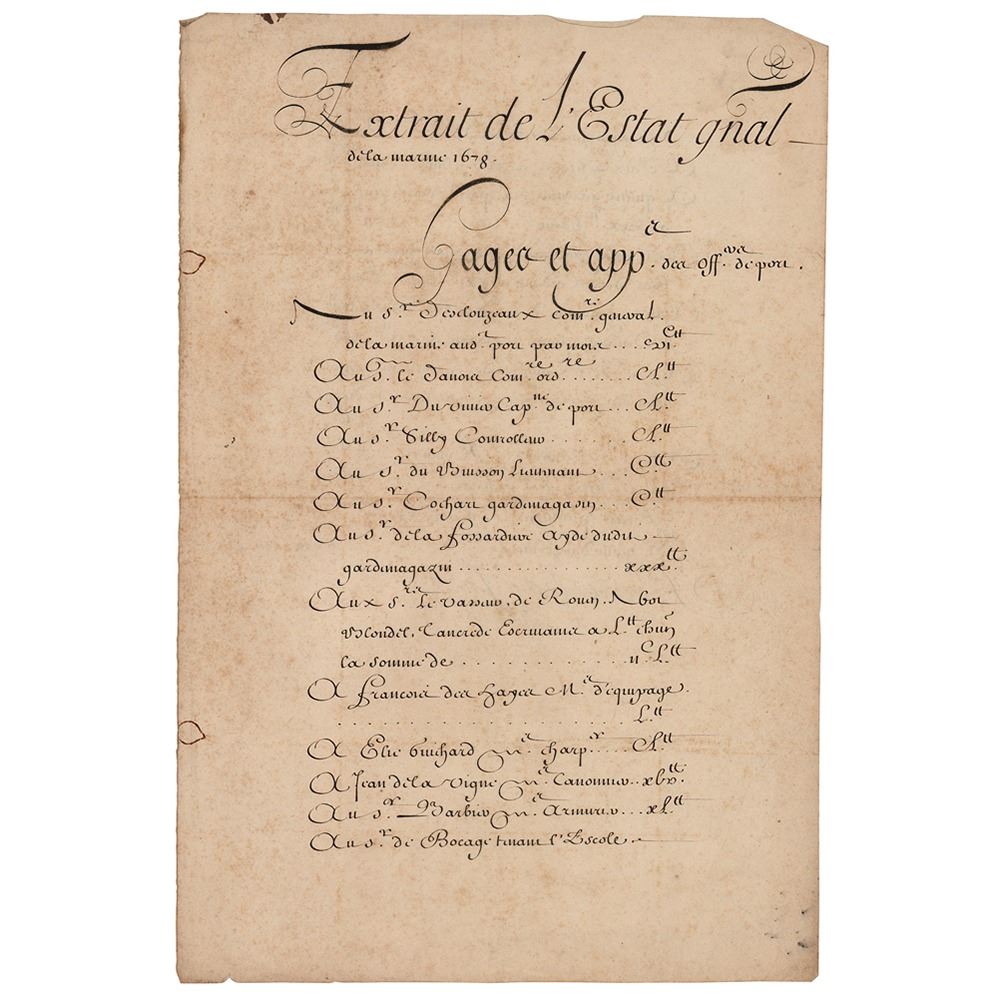 Extrait de l'Estat gnal
de la marine 1678.
Gages et app.ts des Off.ers de port.
Au s.r Desclouzeaux Com.re general
de la marine aud.t port par mois ...
Au s.r le Danois Com.re ord.re ........ CL.tt
Au s.r Du vivier Cap.ne de port ... CL.tt
Au s.r Silly Controlleur ....... CL.tt
Au s.r du Buisson Lieutenant ... C.tt
Au s.r Cochart gardemagasin ... C.tt
Au s.r de la fossardiere ayde dudit
gardemagazin ................ xxx.tt
Aux s.rs le vasseur, de Rouen,
Blondel, Tancrede Escrivains a L.tt chun
la somme de ........... L.tt
A francois des hayes M.e d'equipage.
........................ L.tt
A Elie Guichard m.e charp.r ..... CL.tt
A Jean de la vigne m.e Canonnier .. xlv.tt
Au s.r Barbier m.e Armurier ... xL.tt
Au s.r de Bocage tenant l'Escole.